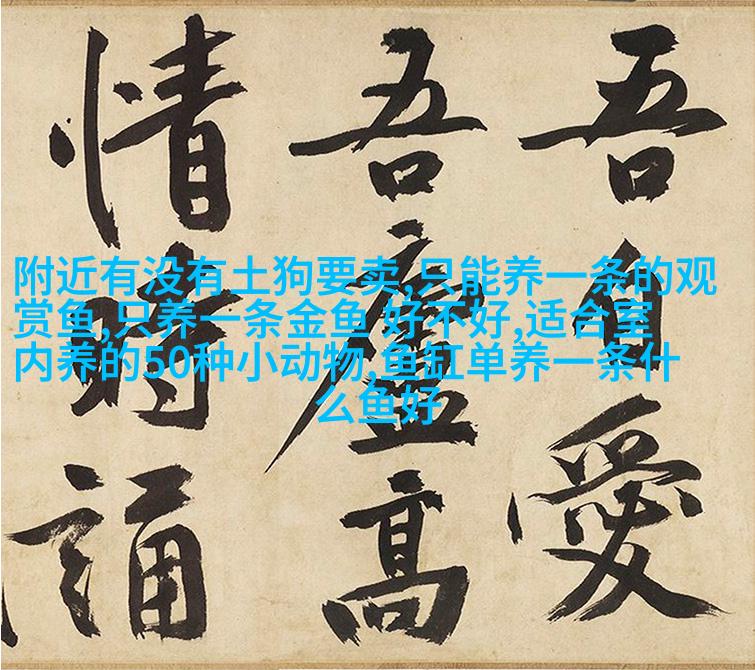 吾自愛
吾廬高
情時誦
附近有没有土狗要卖,只能养一条的观
赏鱼,只养一条金鱼 好不好,适合室
内养的50种小动物,鱼缸单养一条什
么鱼好